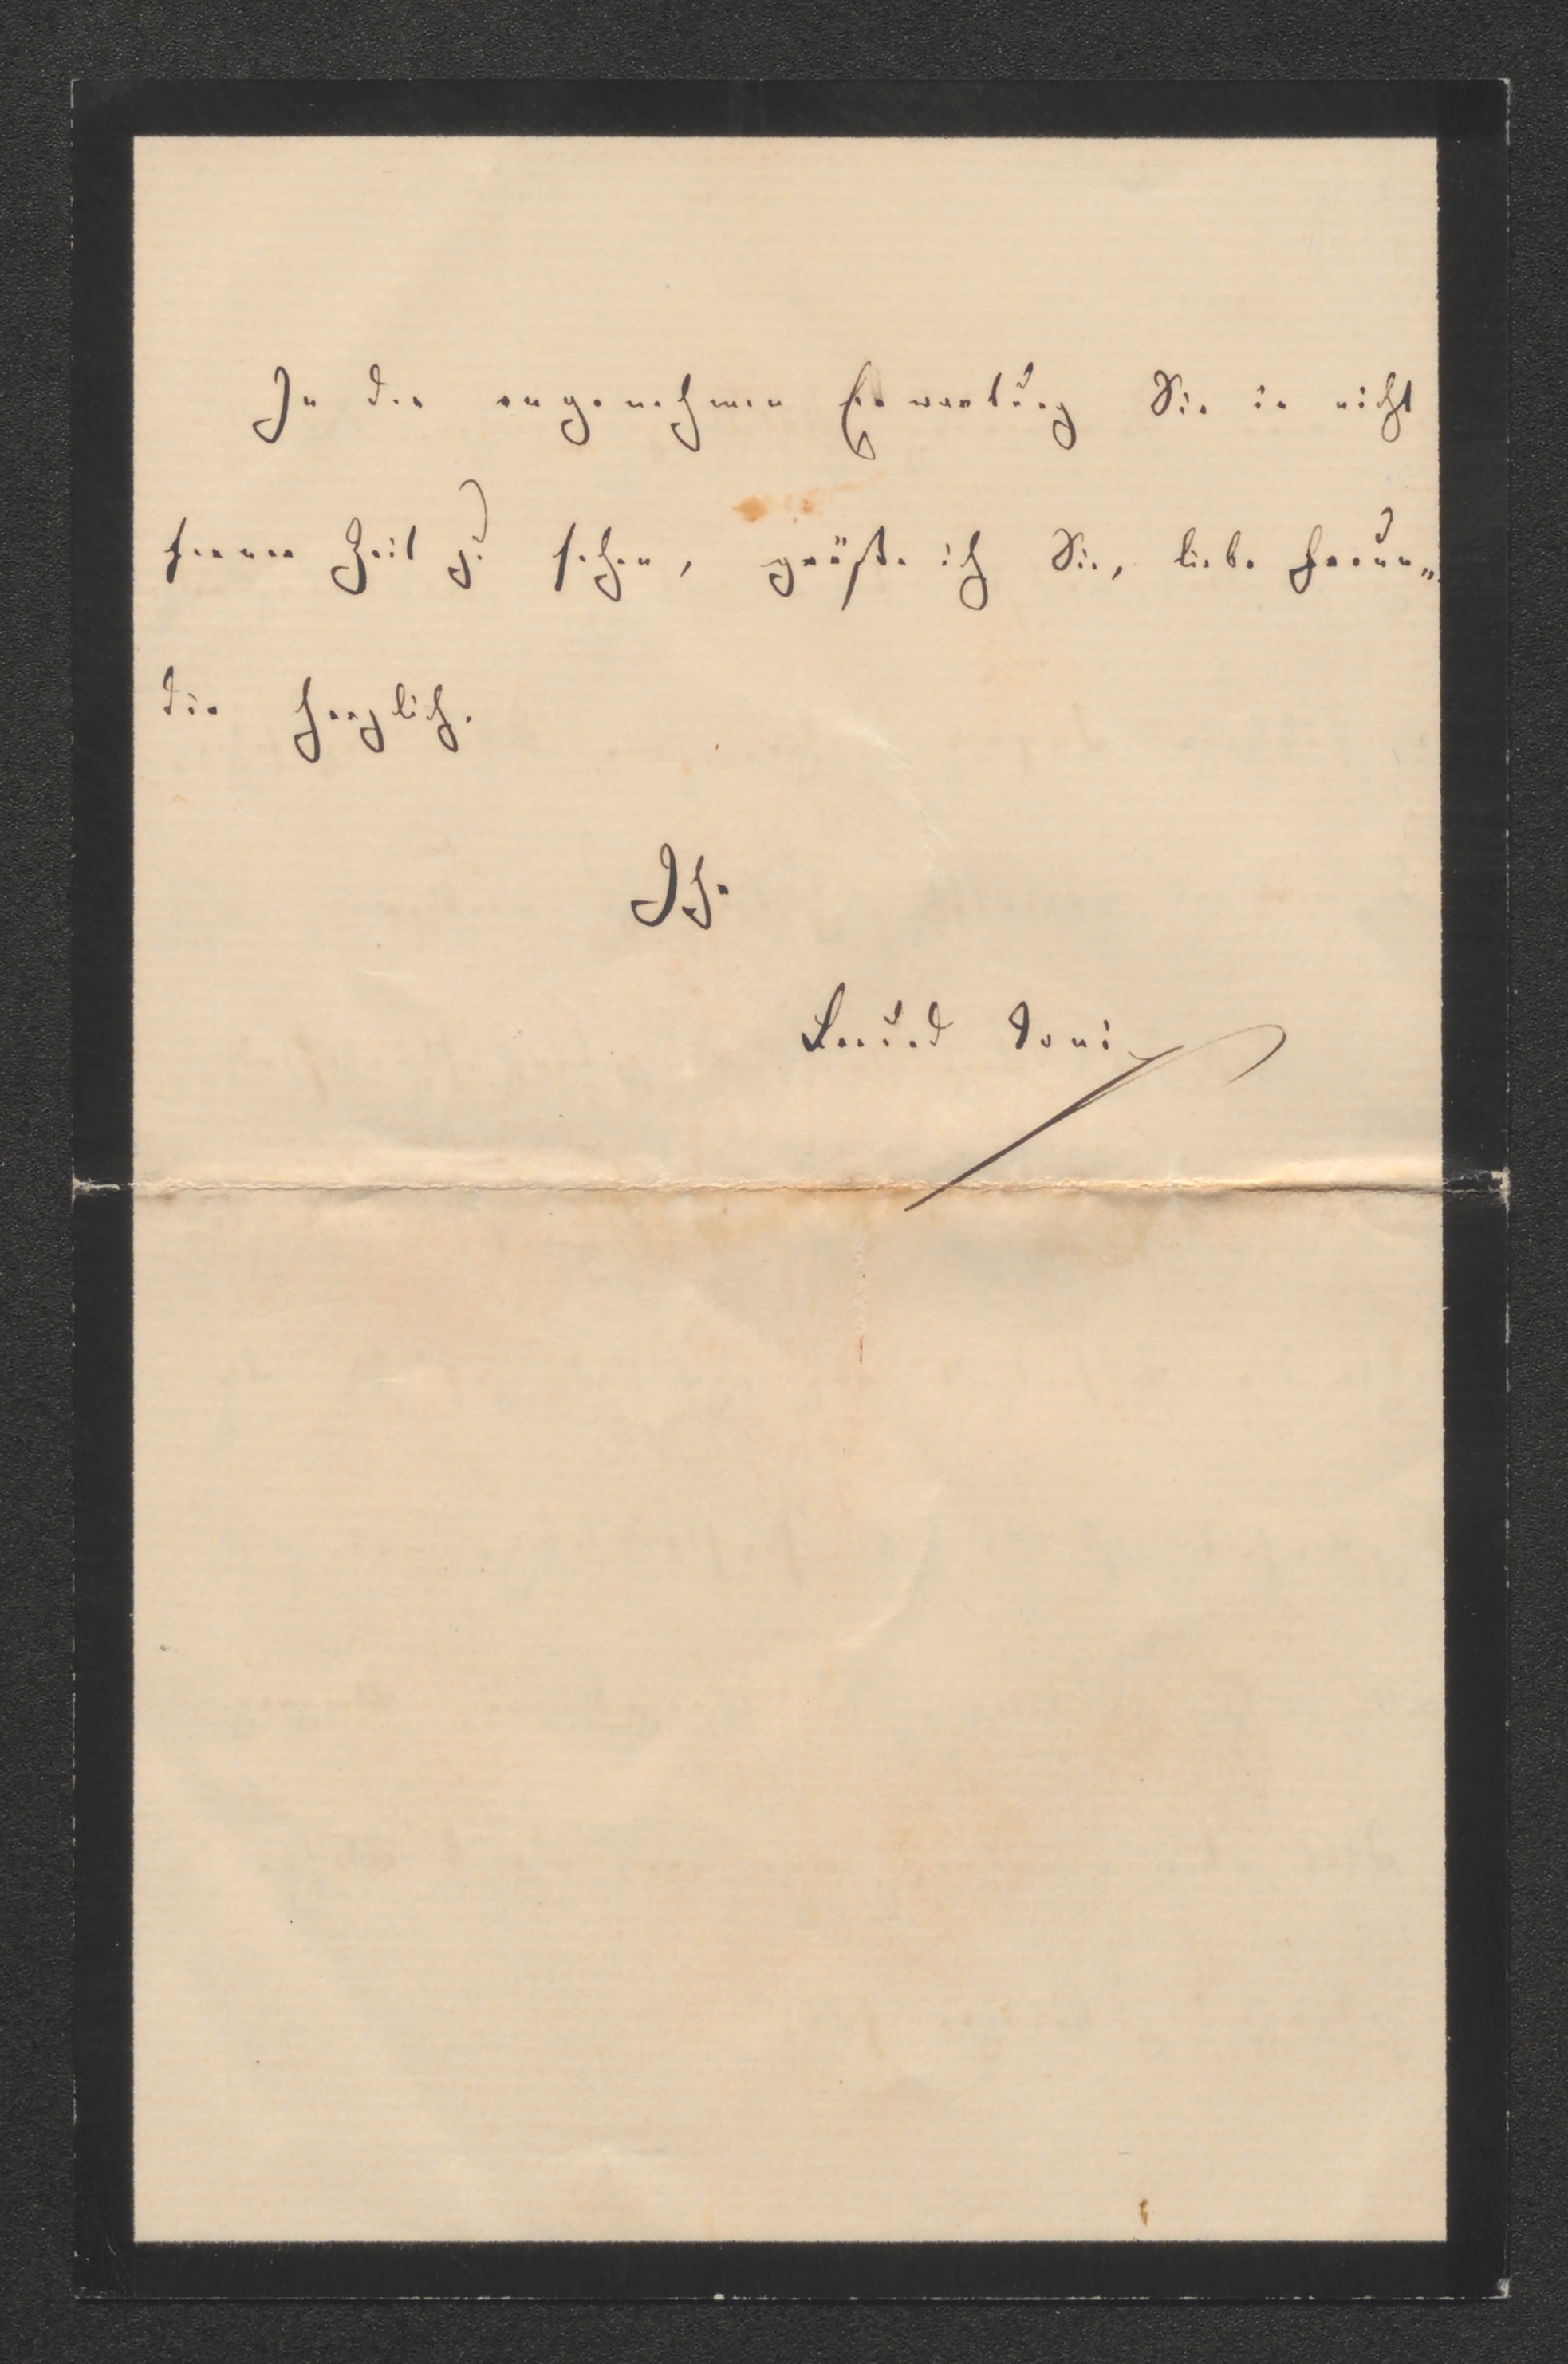 In der angenehmen Erwartung Sie in nicht
ferner Zeit zu sehen, grüße ich Sie, liebe Freun„
din herzlich.
Ihr